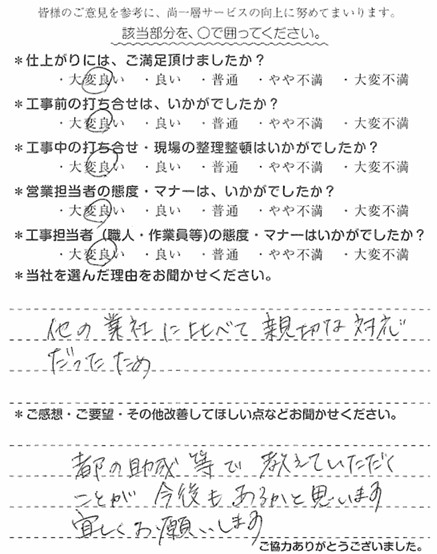 皆様のご意見を参考に、尚一層サービスの向上に努めてまいります。
該当部分を、○で囲ってください。
*仕上がりには、ご満足頂けましたか?
・大変良い ・良い ・普通 ・やや不満 ・大変不満
*工事前の打ち合せは、いかがでしたか?
・大変良い ・良い ・普通 ・やや不満 ・大変不満
*工事中の打ち合せ・現場の整理整頓はいかがでしたか?
・大変良い ・良い ・普通 ・やや不満 ・大変不満
*営業担当者の態度・マナーは、いかがでしたか?
・大変良い ・良い ・普通 ・やや不満 ・大変不満
*工事担当者(職人・作業員等)の態度・マナーはいかがでしたか?
・大変良い ・良い ・普通 ・やや不満 ・大変不満
*当社を選んだ理由をお聞かせください。
他の業社に比べて親切な対応
だったため
*ご感想・ご要望・その他改善してほしい点などお聞かせください。
都の助成等で教えていただく
ことが今後もあるかと思います
宜しくお願いします
ご協力ありがとうございました。